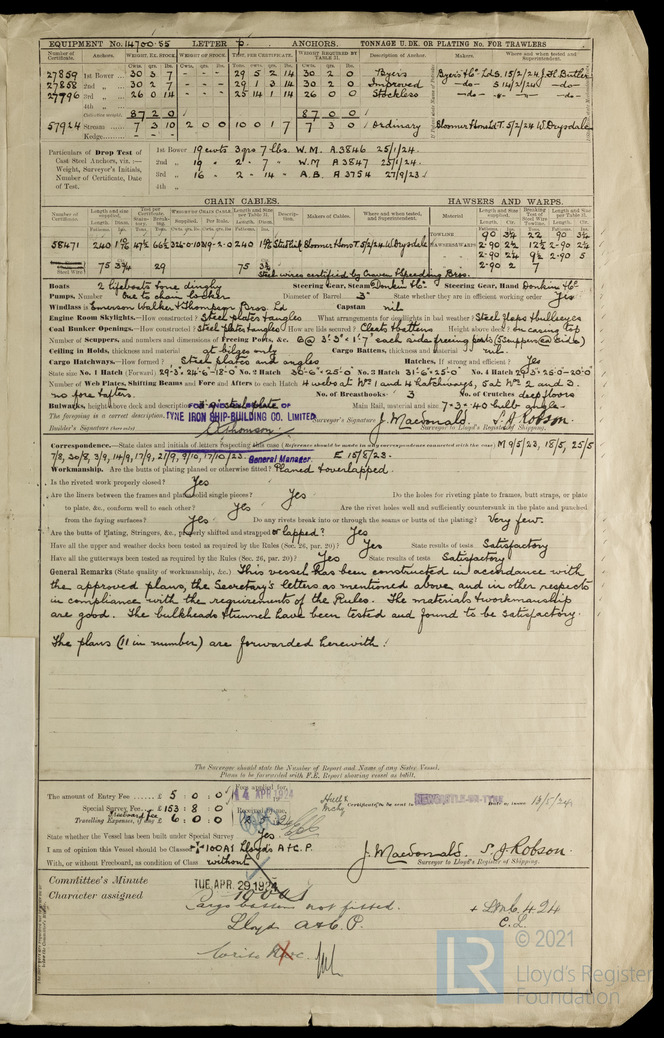 EQUIPMENT No. 14700.55 LETTER ANCHORS. TONNAGE U. DK. OR PLATING No. FOR TRAWLERS
Number of Certificate. Anchors. WEIGHT, EX. STOCK. WEIGHT OF STOCK. TEST, PER CERTIFICATE. WEIGHT REQUIRED BY TABLE 31. Description of Anchor. Makers. Where and when tested and Superintendent.
27859 1st Bower 30 3 7 - - - 29 5 2 14 30 2 0 Byers Byers & Co Ld S. 15/2/24 J.H. Butler
27858 2nd „ 30 2 7 - - - 29 1 3 14 30 2 0 Improved -do- S 14/2/24 -do-
27796 3rd „ 26 0 14 - - - 25 14 1 14 26 0 0 Stockless -do- -do- -do-
4th „
Collective weight 87 2 0 87 0 0
57924 Stream 7 3 10 2 0 0 10 0 1 7 7 3 0 Ordinary T. 5/2/24 W. Drysdale
Kedge
Particulars of Drop Test of Cast Steel Anchors, viz. :— Weight, Surveyor's Initials, Number of Certificate, Date of Test.
1st Bower 19 cwts 3 qrs 7 lbs. W.M. A3846 25/1/24.
2nd „ 19 „ 2 - 7 - W.M A3847 25/1/24.
3rd „ 16 - 2 - 14 - A.B. A3754 27/9/23
4th „
CHAIN CABLES. HAWSERS AND WARPS.
58471 240 240 Stud link T 5/2/24 W Drysdale
TOWLINE 90 22 90
HAWSERS & WARPS 2-90 2-90
2-90 2-90 5
2-90 2 7
75 29 75
Steel wires certified by Craven & Speeding Bros.
Boats 2 lifeboats & one dinghy Steering Gear, Steam Donkin & Co Steering Gear, Hand Donkin & Co
Pumps, Number One to chain locker Diameter of Barrel 3" State whether they are in efficient working order Yes
Windlass is Emerson Walker & Thompson Bros. Ld Capstan nil
Engine Room Skylights.—How constructed ? Steel plates & angles What arrangements for deadlights in bad weather ? Steel flaps & bullseyes
Coal Bunker Openings.—How constructed ? Steel plates & angles How are lids secured ? Cleats & battens Height above deck ? On casing top
Number of Scuppers, and numbers and dimensions of Freeing Ports, &c. 6 @ 3'-3" × 1'-7" each side freeing ports (5 scuppers @ side)
Ceiling in Holds, thickness and material at bilges only Cargo Battens, thickness and material nil.
Cargo Hatchways.—How formed ? Steel plates and angles Hatches, If strong and efficient ? Yes
State size No. 1 Hatch (Forward) 29'-3" × 24'-6"-18'-0" No. 2 Hatch 30'-6" × 25'-0" No. 3 Hatch 31'-6" × 25'-0" No. 4 Hatch 29'-3" × 25'-0"-20'-0"
Number of Web Plates, Shifting Beams and Fore and Afters to each Hatch 4 webs at Nos 1 and 4 Hatchways, 5 at Nos 2 and 3.
no fore & afters. No. of Breasthooks 3 No. of Crutches deep floors
Bulwarks, height above deck and description steel plate Main Rail, material and size 7 × 3 × .40 bulb angle
The foregoing is a correct description,
TYNE IRON SHIP-BUILDING CO. LIMITED
Builder's Signature (here only) Surveyor's Signature J. Macdonald. S. J. Robson.
Surveyor to Lloyd's Register of Shipping.
General Manager.
Correspondence.—State dates and initials of letters respecting this case (Reference should be made in any correspondence connected with the case) M 9/5/23, 18/5, 25/5
7/8, 30/8, 3/9, 14/9, 17/9, 21/9, 9/10, 17/10/23. E 15/8/23.
Workmanship. Are the butts of plating planed or otherwise fitted? Planed & overlapped.
Is the riveted work properly closed? Yes
Are the liners between the frames and plates solid single pieces? Yes Do the holes for riveting plate to frames, butt straps, or plate
to plate, &c., conform well to each other? Yes Are the rivet holes well and sufficiently countersunk in the plate and punched
from the faying surfaces? Yes Do any rivets break into or through the seams or butts of the plating? Very few.
Are the butts of Plating, Stringers, &c., properly shifted and strapped or lapped? Yes
Have all the upper and weather decks been tested as required by the Rules (Sec. 26, par. 20)? Yes State results of tests Satisfactory
Have all the gutterways been tested as required by the Rules (Sec. 26, par. 20)? Yes State results of tests Satisfactory
General Remarks (State quality of workmanship, &c.) This vessel has been constructed in accordance with
the approved plans, the Secretary's letters as mentioned above and in other respects
in compliance with the requirements of the Rules. The materials & workmanship
are good. The bulkheads & tunnel have been tested and found to be satisfactory.
The plans (11 in number) are forwarded herewith.
The Surveyor should state the Number of Report and Name of any Sister Vessel.
Please to be forwarded with F.E. Report showing vessel as built.
The amount of Entry Fee £ 5 : 0 : 0
Special Survey Fee £ 153 : 8 : 0
Freeboard fee
Travelling Expenses, if any £ 6 : 0 : 0
14 APR 1924
Certificate to be sent to NEWCASTLE-ON-TYNE
State whether the Vessel has been built under Special Survey Yes.
I am of opinion this Vessel should be Classed +100A1 Lloyd's A & C.P.
With, or without Freeboard, as condition of Class without
J. Macdonald. S. J. Robson.
Surveyor to Lloyd's Register of Shipping.
Committee's Minute TUE. APR. 29 1924
Character assigned +100A1
Cargo battens not fitted.
Lloyds A & C.P.
+ LMC 4.24
C.L.
LR
© 2021
Lloyd's Register
Foundation